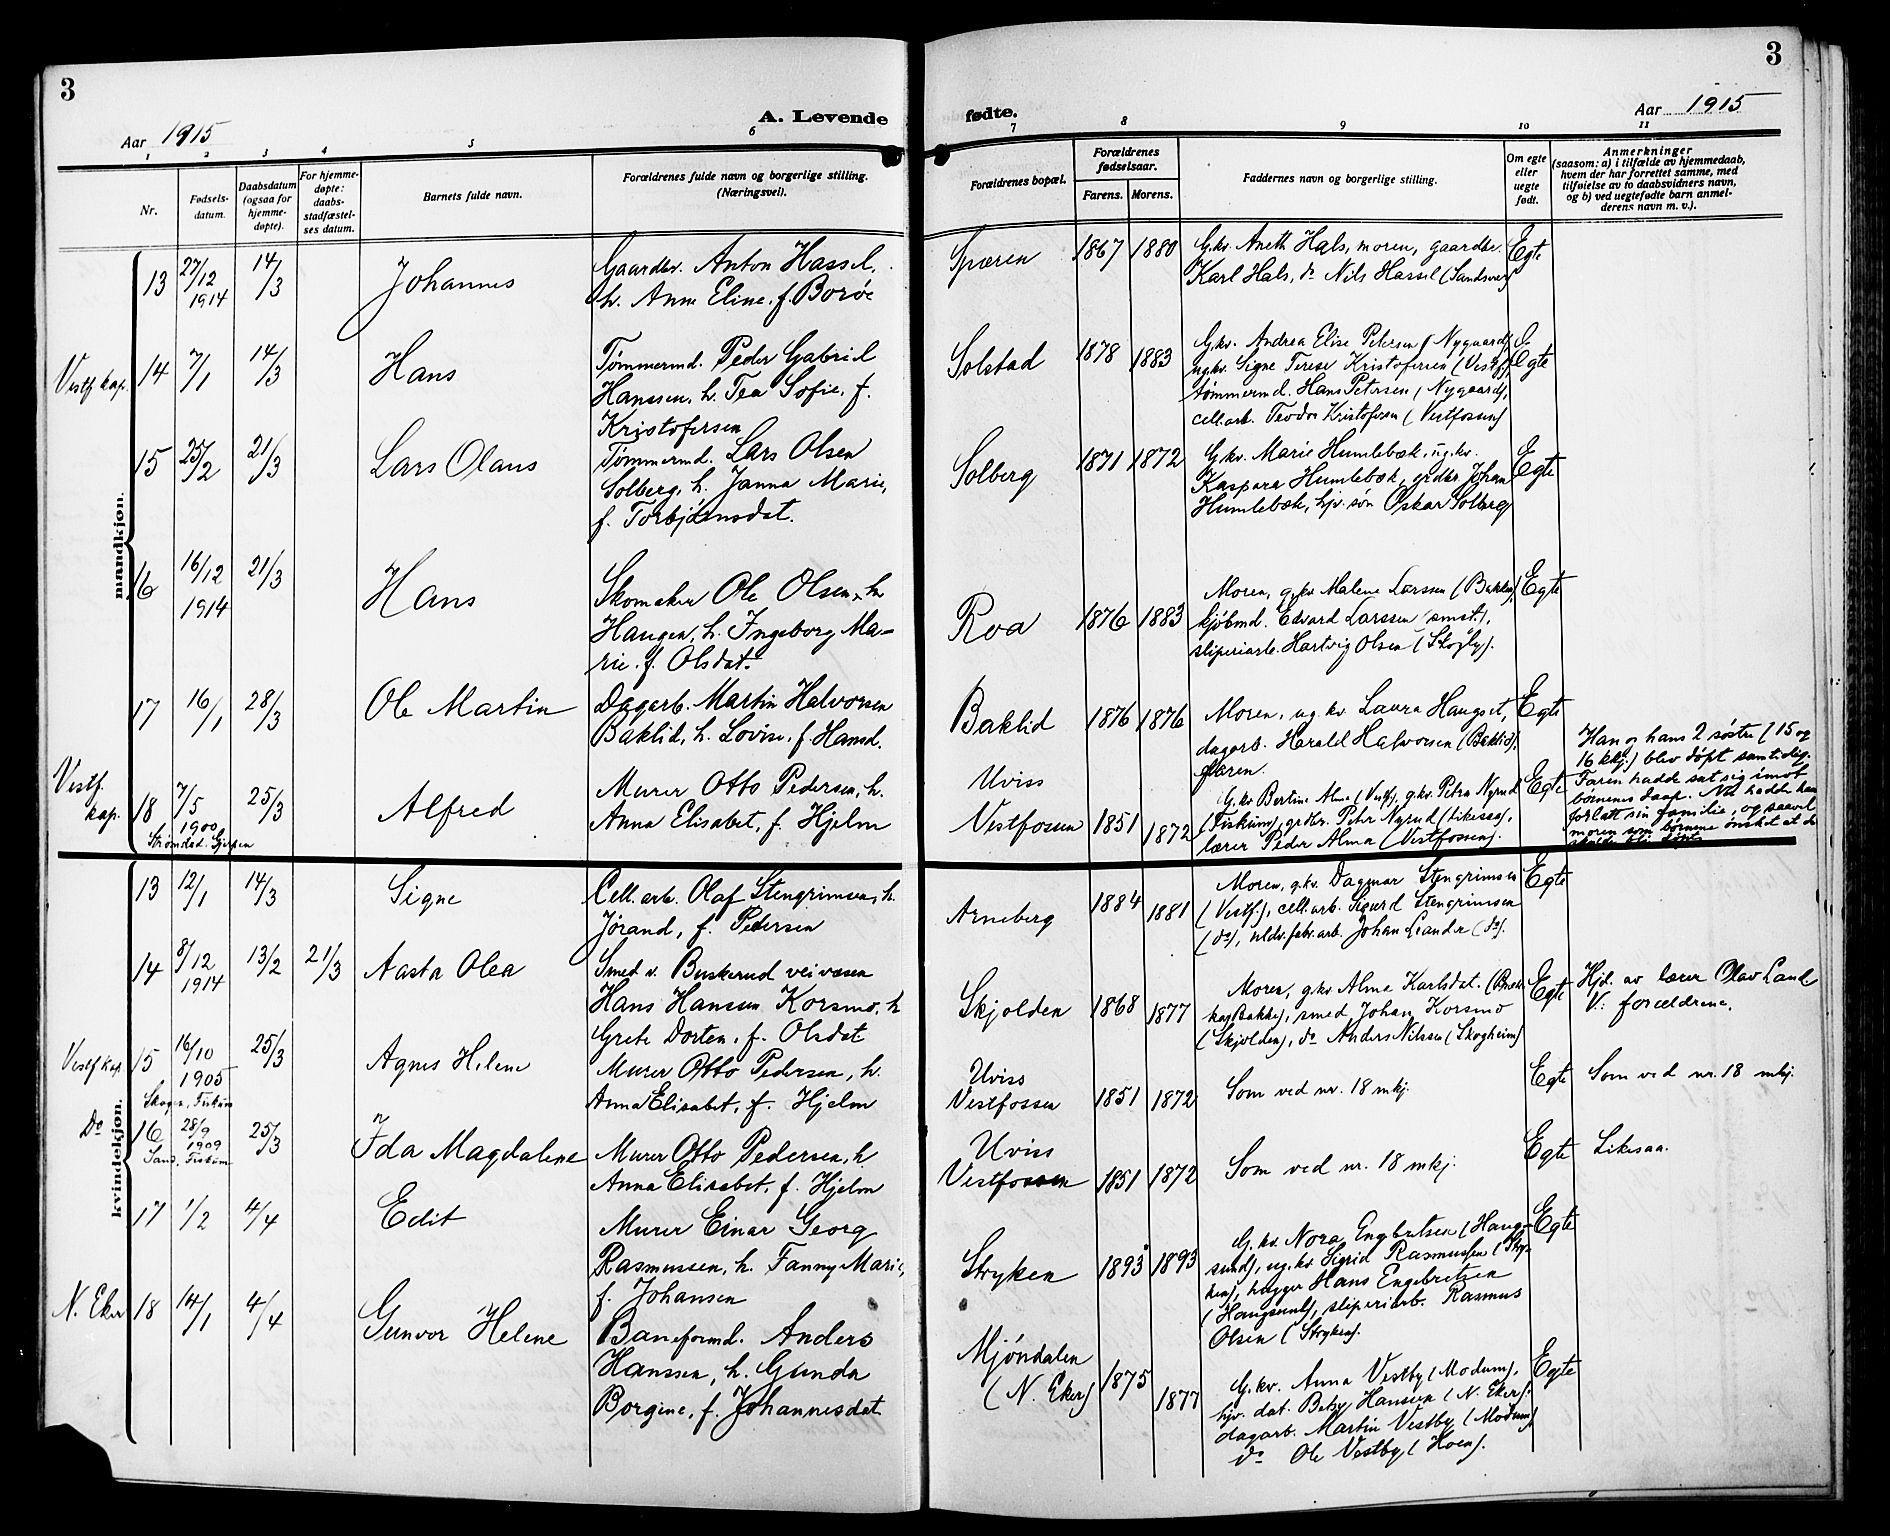 3
Aar 1915
A. Levende
1 2 3 4 5 6
Nr.
Fødsels-
datum.
Daabsdatum
(ogsaa for
hjemme-
døpte).
For hjemme-
døpte:
daabs-
stadfæstel-
ses datum.
Barnets fulde navn.
Forældrenes fulde navn og borgerlige stilling.
(Næringsvei).
mandkjøn.
13 27/12 1914 14/3 Johannes
Gaardbr. Anton Hassel,
h. Anne Eline, f. Borøe
Vestf. kap. 14 7/1 14/3 Hans
Tømmermd. Peder Gabriel
Hanssen, h. Tea Sofie, f.
Kristofersen
15 25/2 21/3 Lars Olaus
Tømmermd. Lars Olsen
Solberg, h. Janna Marie,
f. Torbjørnsdat.
16 16/12 1914 21/3 Hans
Skomaker Ole Olsen
Haugen, h. Ingeborg Ma-
rie. f. Olsdat.
17 16/1 28/3 Ole Martin
Dagarb. Martin Halvorsen
Baklid, h. Lovise, f. Hansd.
Vestf.
kap. 18 7/5 1900 25/3 Alfred
Murer Otto Pedersen, h.
Anna Elisabet, f. Hjelm
kvindekjøn.
13 12/1 14/3 Signe
Cell. arb. Olaf Stengrimsen, h.
Jørand, f. Pedersen
14 8/12 1914 13/2 21/3 Aasta Olea
Smed v. Buskerud veivæsen
Hans Hansen Korsmo, h
Grete Dorten, f. Olsdat
Vestf kap. 15 16/10 1905 25/3 Agnes Helene
Skoger, Fiskum
Murer Otto Pedersen, h.
Anna Elisabet, f. Hjelm
Do 16 28/9 1909 25/3 Ida Magdalene
Sand, Fiskum
Murer Otto Pedersen, h
Anna Elisabet, f. Hjelm
17 1/2 4/4 Edit
Murer Einar Georg
Rasmussen, h. Fanny Marie,
f. Johansen
N. Eker 18 14/1 4/4 Gunvor Helene
Baneformd. Anders
Hanssen, h. Gunda
Borgine, f. Johannesdat
3
fødte.
Aar 1915
7 8 9 10 11
Forældrenes bopæl.
Forældrenes
fødselsaar.
Farens. Morens.
Faddernes navn og borgerlige stilling.
Om egte
eller
uegte
født.
Anmerkninger
(saasom: a) i tilfælde av hjemmedaab,
hvem der har forrettet samme, med
tilføielse av to daabsvidners navn,
og b) ved uegtefødte barn anmel-
derens navn m. v.).
Spæren 1867 1880
G.kv. Aneth Hals, moren, gaardbr.
Karl Hals, do Nils Hassel (Sandsver)
Egte
Solstad 1878 1883
G.kv. Andrea Elise Petersen (Nygaard),
ug.kv. Signe Terese Kristofersen (Vestf.),
tømmermd. Hans Petersen (Nygaard),
cell.arb. Teodor Kristofersen (Vestfossen)
Egte
Solberg 1871 1872
G.kv. Marie Humlebæk, ug.kv.
Kaspara Humlebæk, grdbr. Johan
Humlebæk, hjv. søn Oskar Solberg
Egte
Roa 1876 1883
Moren, g.kv. Malene Larssen (Bakken),
kjøbmd. Edvard Larssen (smst.),
sliperiarb. Hartvig Olsen (Skogly).
Egte
Baklid 1876 1876
Moren, ug.kv. Laura Haugset,
dagarb. Harald Halvorsen (Baklid),
faren.
Egte
Uviss
Vestfossen 1851 1872
G.kv Bertine Alme (Vestf), g.kv. Petra Nyrud
(Fiskum), grdbr. Peter Nyrud (likesaa),
lærer Peder Alma (Vestfossen).
Egte
Han og hans 2 søstre (15 og
16 kkj.) blev døpt samtidig.
Faren hadde sat sig imot
børnenes daap. Nu hadde han
forlatt sin familie, og saavel
moren som børnene ønsket at de
skulde bli døpt.
Arneberg 1884 1881
Moren, g.kv. Dagmar Stengrimsen
(Vestf.), cell.arb. Sigurd Stengrimsen
(do), uldv.fabr.arb. Johan Leander (do).
Egte
Skjolden 1868 1877
Moren, g.kv Alma Karlsdat.
smed Johan Korsmo
(Skjolden), do Anders Nilssen (Skogheim)
Egte
Hjd. av lærer Olav Lande
V: forældrene.
Uviss
Vestfossen 1851 1872
Som ved nr. 18 mkj.
Egte
Som ved nr. 18 mkj.
Uviss
Vestfossen 1851 1872
Som ved nr. 18 mkj.
Egte
Likesaa.
Stryken 1893 1893
G.kv. Nora Engebretsen (Haug-
sund), ug.kv. Sigrid Rasmussen (Stry-
ken), hugger Hans Engebretsen
(Haugsund), sliperiarb. Rasmus
Olsen (Stryken).
Egte
Mjøndalen
(N. Eker) 1875 1877
G.kv. Anna Vestby (Modum),
hjv. dat. Betsy Hansen (N. Eker),
dagarb. Martin Vestby (Modum)
do Ole Vestby (Hoen).
Egte